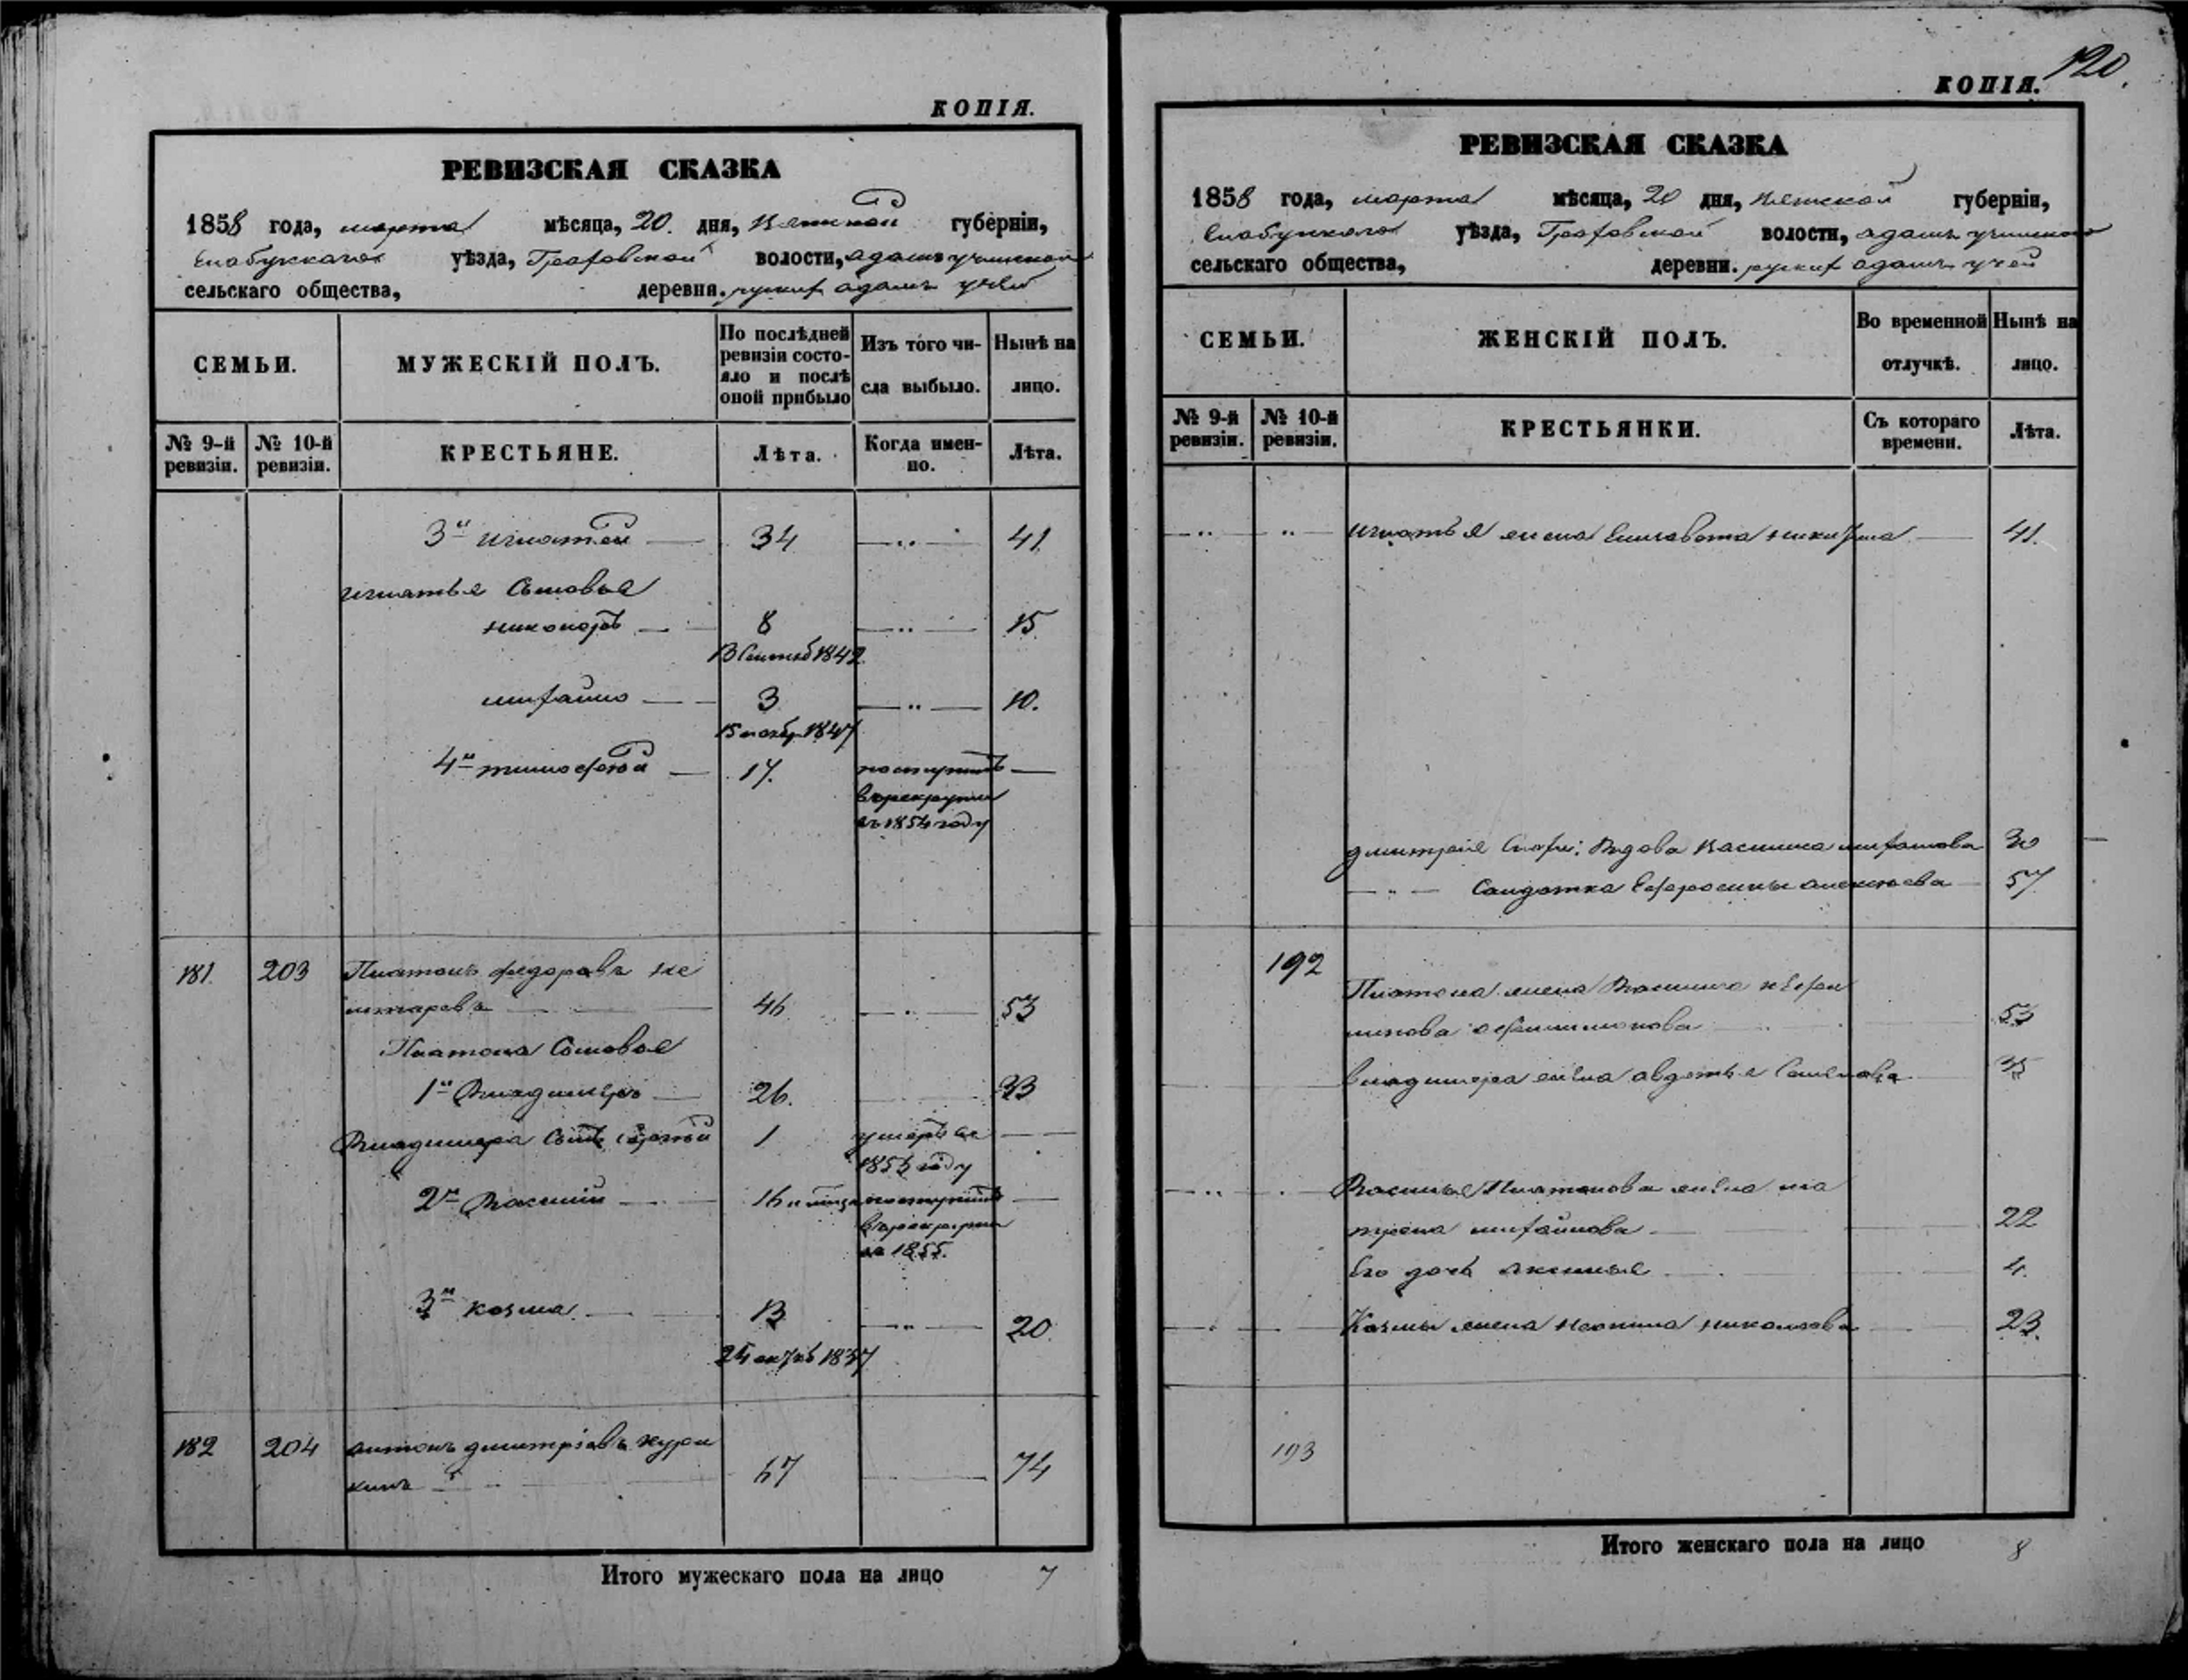 КОПІЯ.
РЕВИЗСКАЯ СКАЗКА
1858 года, марта мѣсяца, 20. дня, Вятской губерніи,
Елабужскаго уѣзда, Граховской волости, адамъ учинскаго
сельскаго общества, деревни. рускихъ адамъ учей
СЕМЬИ.
МУЖЕСКІЙ ПОЛЪ.
По послѣдней ревизіи состояло и послѣ оной прибыло
Изъ того числа выбыло.
Нынѣ на лицо.
№ 9-й ревизіи.
№ 10-й ревизіи.
КРЕСТЬЯНЕ.
Лѣта.
Когда именно.
Лѣта.
3й игнатей 34 41
игнатья Сыновья
никоноръ 8 15
13 Сентяб 1842
михайло 3 10.
15 ноябр 1847
4й тимофей 17. поступилъ
в рекруты
въ 1854 году
181. 203 Платонъ федоровъ
46 53
Платона Сыновья
1й Владимеръ 26. 33
Владимера Сынъ Сергей 1 умеръ въ
1853 году
2й Василий 16 поступилъ
в рекруты
въ 1855.
3й козма 13 20.
1837
182 204 антонъ дмитріевъ кура
кинъ 67 74
Итого мужескаго пола на лицо 7
120.
КОПІЯ.
РЕВИЗСКАЯ СКАЗКА
1858 года, марта мѣсяца, 20 дня, Вятской губерніи,
Елабужскаго уѣзда, Граховской волости, адамъ учинскаго
сельскаго общества, деревни. рускихъ адамъ учей
СЕМЬИ.
ЖЕНСКІЙ ПОЛЪ.
Во временной отлучкѣ.
Нынѣ на лицо.
№ 9-й ревизіи.
№ 10-й ревизіи.
КРЕСТЬЯНКИ.
Съ котораго времени.
Лѣта.
игнатья жена Елисавета 41.
дмитрія Вдова Василиса 30
Салдатка Ефросинья алексѣева 57
192
Платона жена Василиса
53
владимера жена авдотья Семенова 35
Василья Платонова жена ма
трена михайлова 22
Его дочь 4.
Козмы жена 23.
193
Итого женскаго пола на лицо 8